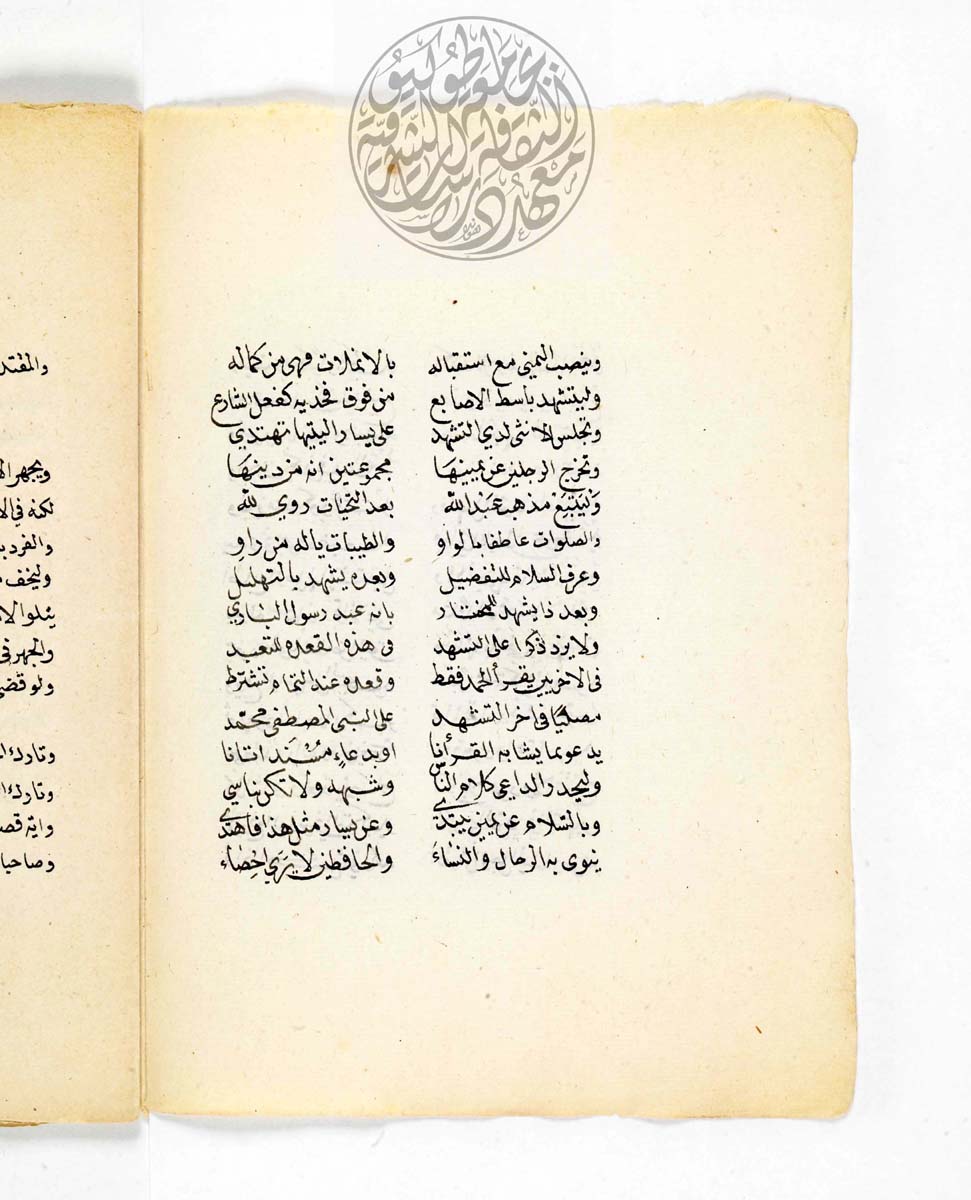 وينصب اليمنى مع استقباله بالانملات فهى من كماله
وليتشهد باسط الاصابع من فوق فخذيه كفعل الشارع
وتجلس الانثى لدي التشهد على يسار اليتيها تهتدي
وتخرج الرجلين عن يمينها مجموعتين انه من دينها
وليتبع مذهب عبد الله بعد التحيات روي لله
والصلوات عاطفا بالواو والطيبات ياله من راو
وعرف السلام للتفضيل وبعده يشهد بالتهليل
وبعد ذا يشهد للمختار بانه عبد رسول الباري
ولا يزد ذكرا على التشهد فى هذه القعده للتعبد
فى الاخريين يقرأ الحمد فقط وقعده عند التمام تشترط
مصليا فى اخر التشهد على النبى المصطفى محمد
يدعو بما يشابه القرأنا او بدعاء مسند اتانا
وليحذر الداعى كلام الناس وشبهه ولا تكن بناسي
وبالسلام عن يمين يبتدى وعن يسار مثل هذا فاهتدى
ينوى به الرجال والنساء والحافظين لا يرى احصاء
والمقتد
ويجهر
لكنه في
والفرد
وليخف
يتلوا
والجهر فى
ولو قضى
وتارك
وتارك
واية
وصاحبا